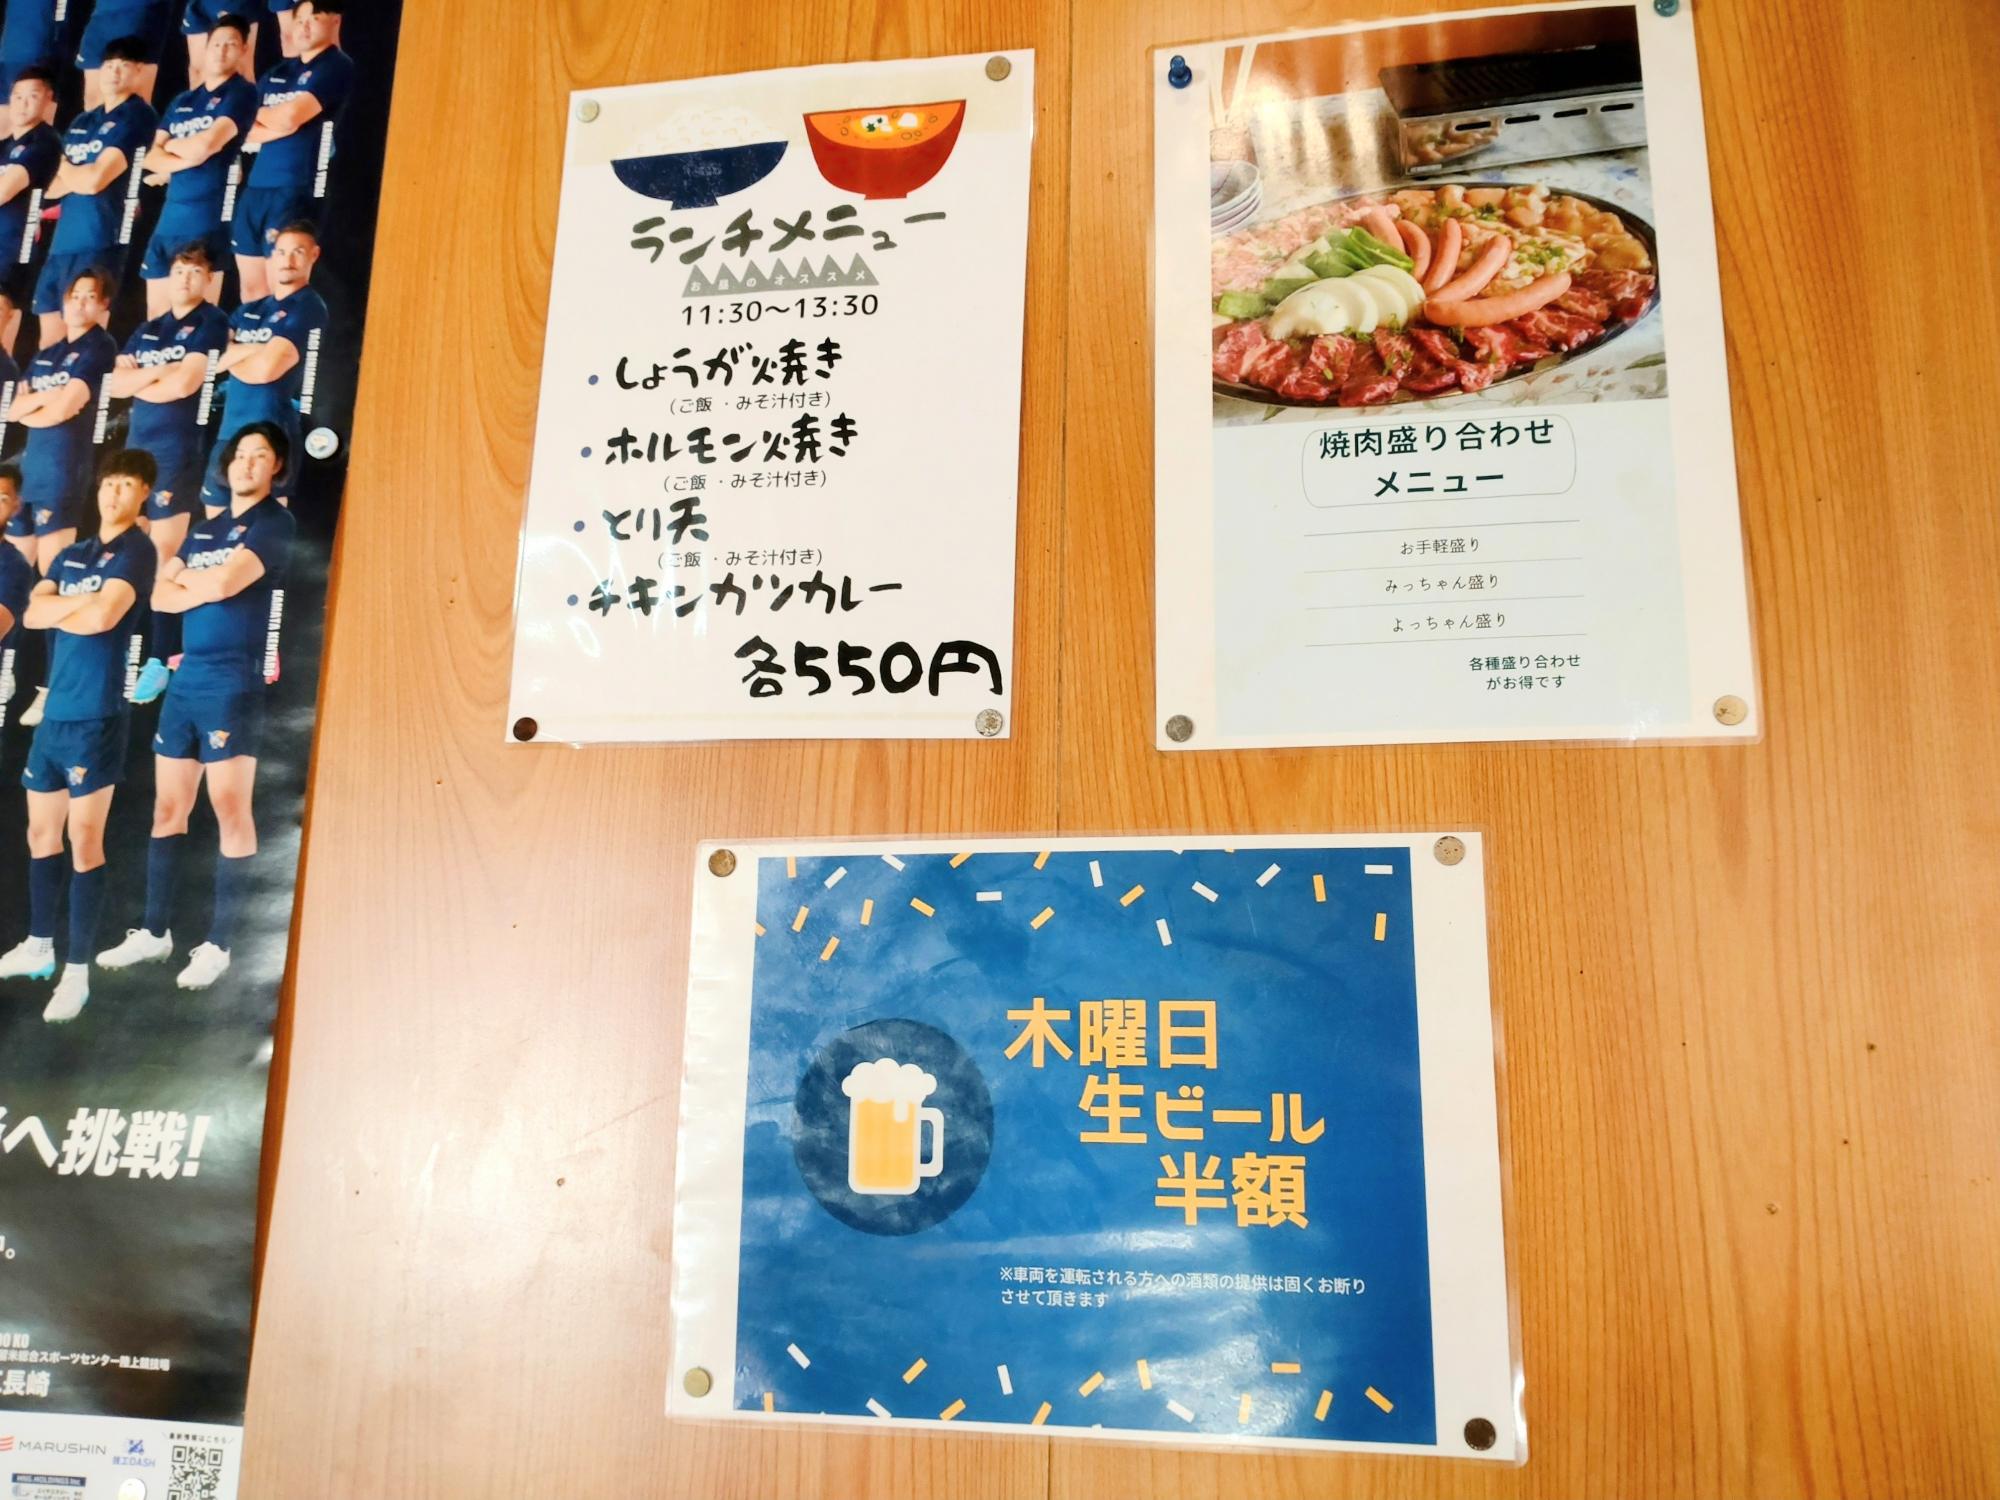 ランチメニュー
お昼のオススメ
11:30〜13:30
・しょうが焼き
(ご飯・みそ汁付き)
・ホルモン焼き
(ご飯・みそ汁付き)
・とり天
(ご飯・みそ汁付き)
・チキンカツカレー
各550円
焼肉盛り合わせ
メニュー
お手軽盛り
みっちゃん盛り
よっちゃん盛り
各種盛り合わせ
がお得です
木曜日
生ビール
半額
※車両を運転される方への酒類の提供は固くお断り
させて頂きます
へ挑戦!
KAMATA KENTARO
LeRIRO
留米総合スポーツセンター陸上競技場
長崎
MARUSHIN
技工DASH
最新情報はこちら